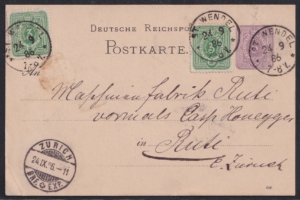 DEUTSCHE REICHSPOST
POSTKARTE.
ST. WENDEL
24 9
86
7-8 V.
ST. WENDEL
24 9
86
7-8 V.
Maschinenfabrik Rüti
vormals Casp. Honegger
in Rüti
C. Zürich
ZÜRICH
24.IX.86.-11
BRF.EXP.